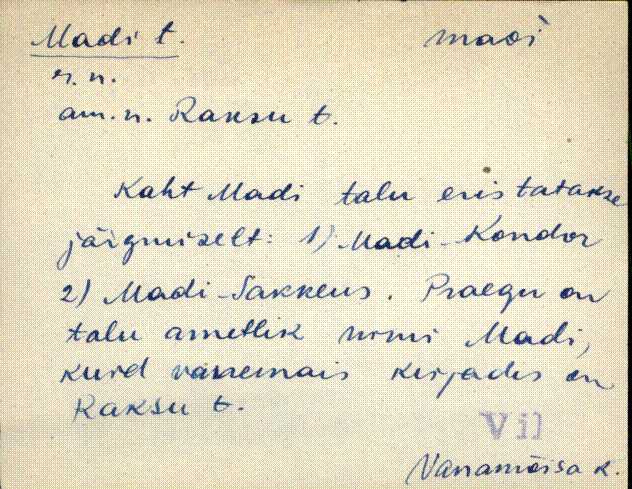 Madi t. maδì
r. n.
am. n. Raksu t.
Kaht Madi talu eristatakse
järgmiselt: 1) Madi-Kondor
2) Madi-Sakkeus. Praegu on
talu ametlik nimi Madi,
kuid vanemais kirjades on
Raksu t.
Vil
Vanamõisa k.